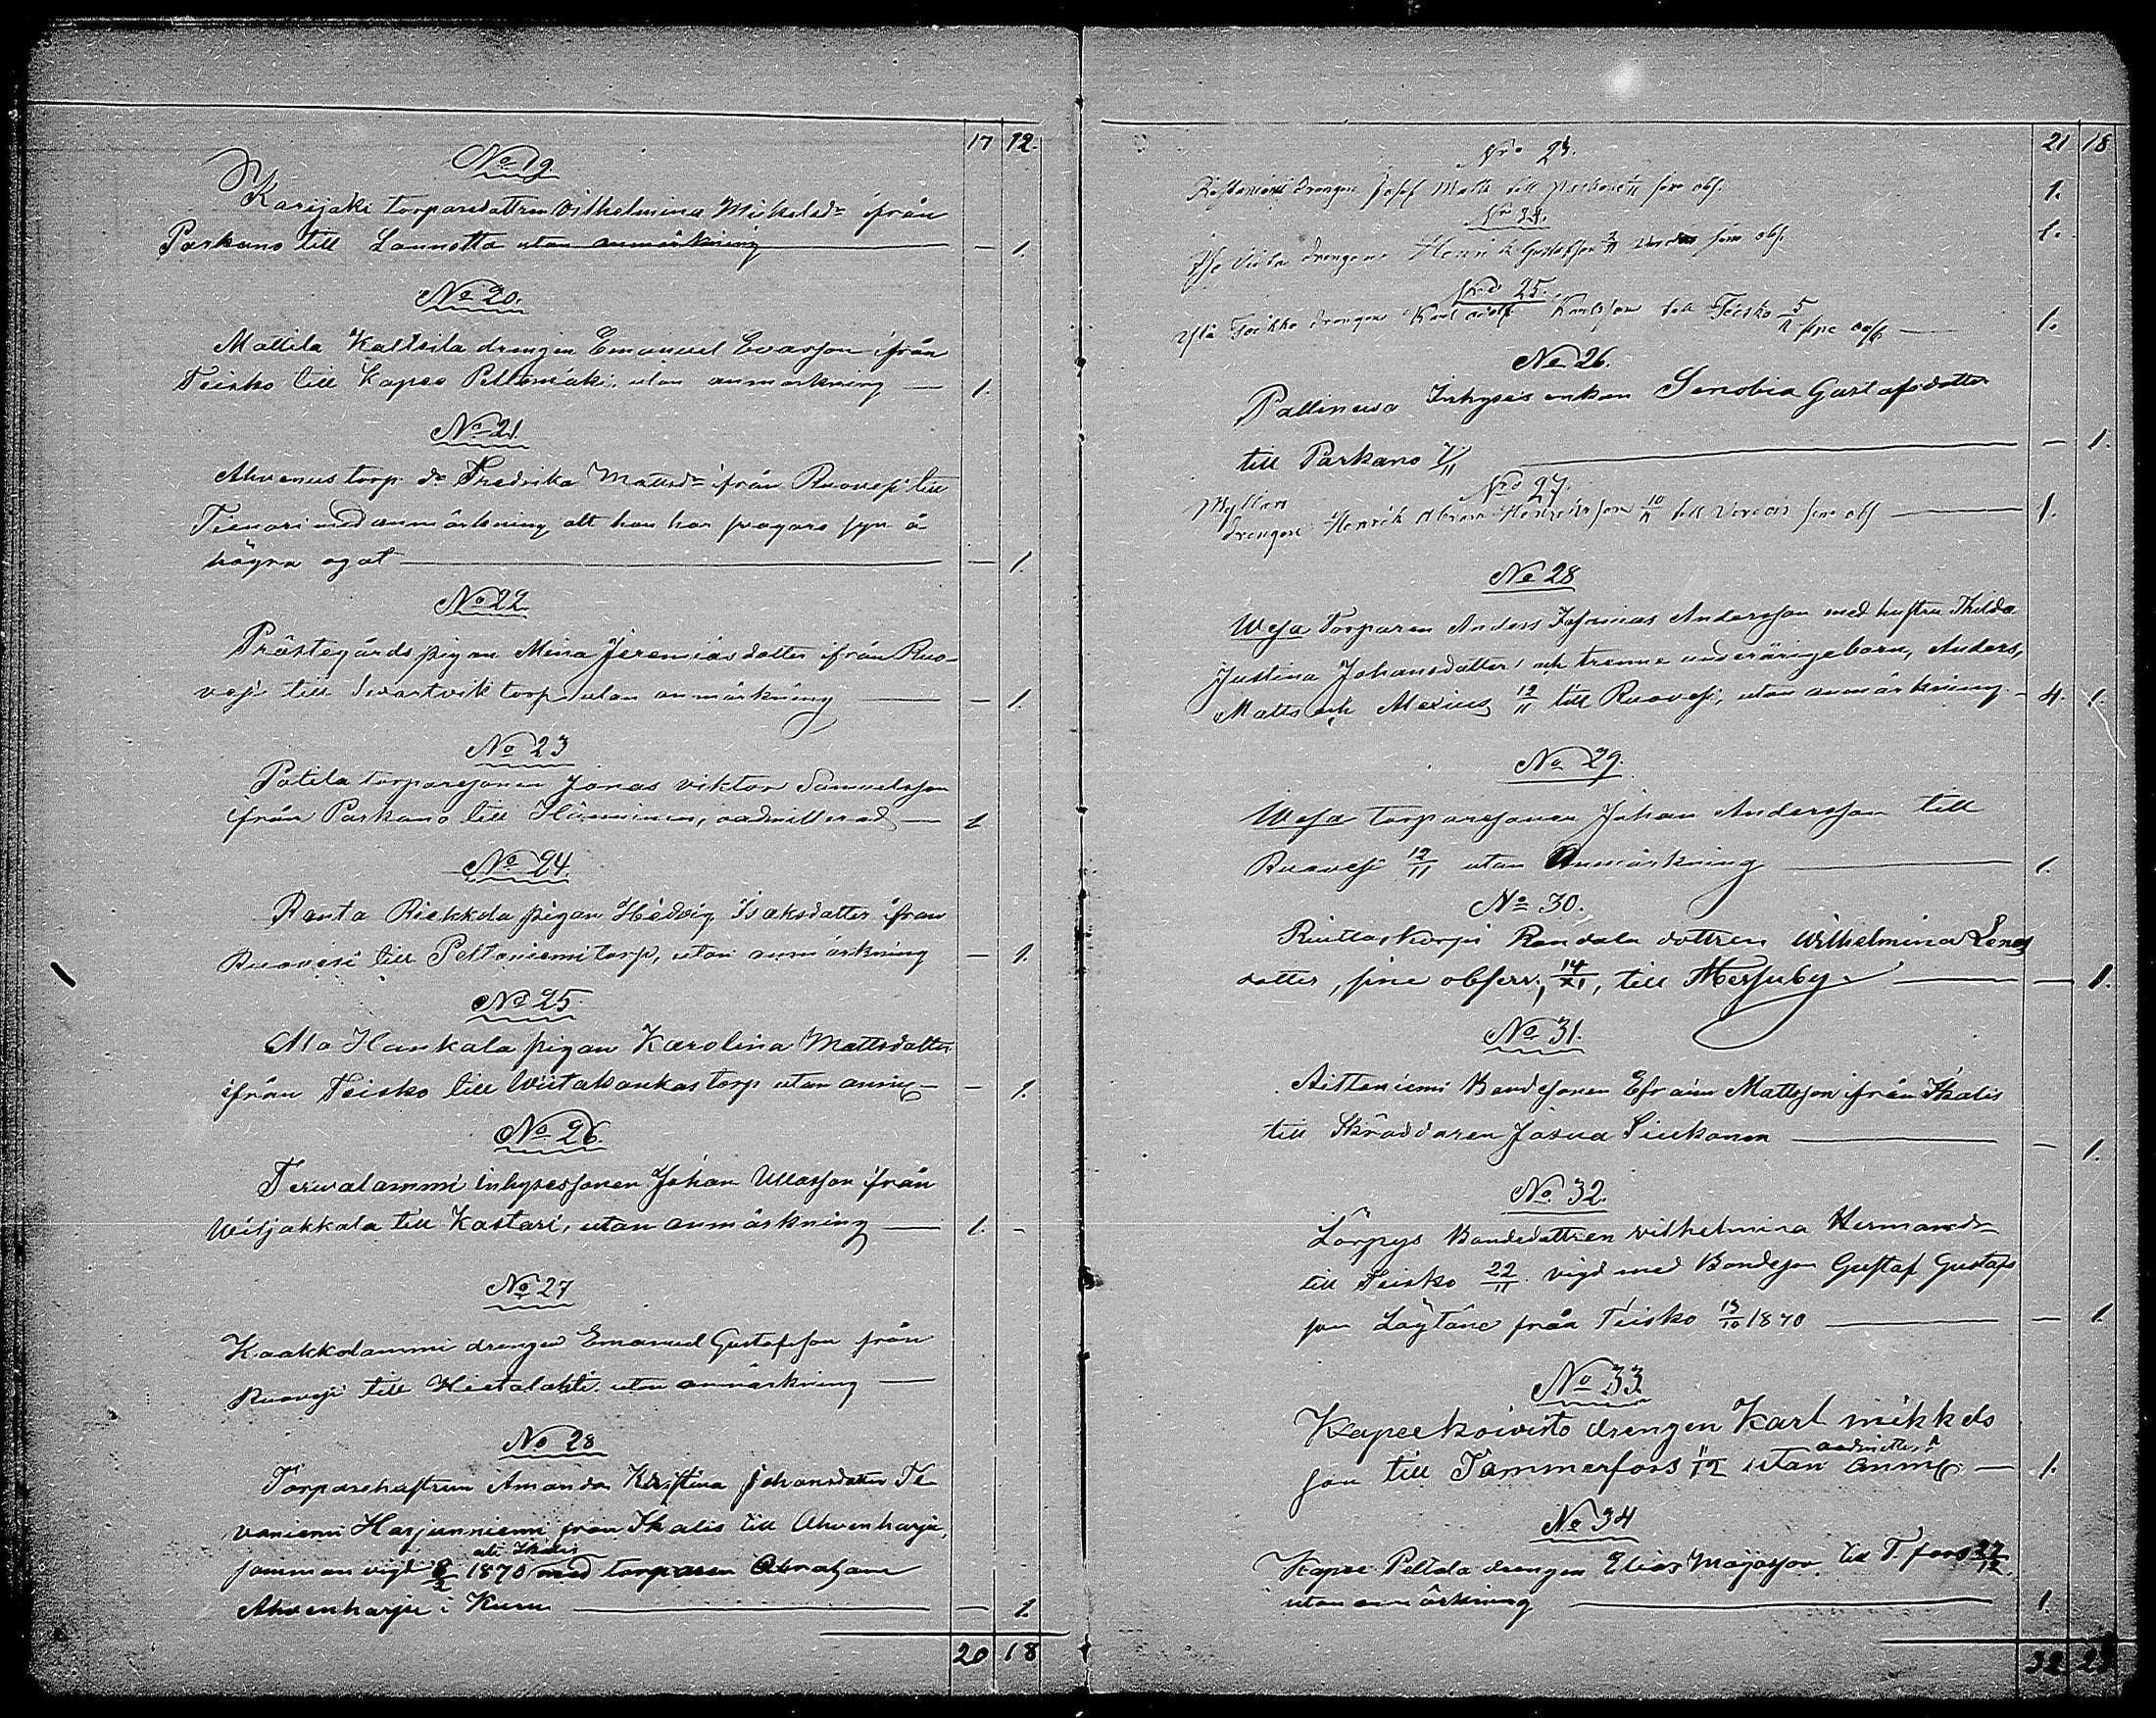 17 12.
No 19.
Karijäki torparedottren Vilhelmina Mickelsdr ifrån
Parkano till Launotta utan anmärkning — 1.
No 20.
Mattila Kaltsila drengen Emanuel Evasson ifrån
Teisko till Kapee Peltomäki, utan anmärkning — 1.
No 21.
Ahvenus torp. dr Fredrika Mattsdr ifrån Ruovesi till
Tienari med anmärkning att hon har svagare syn å
högra ögat — 1.
No 22.
Prästegårds pigan Mina Jeremiasdotter ifrån Ruo-
vesi till Svartvik torp utan anmärkning — 1.
No 23
Potila torparesonen Jonas Viktor Samuelsson
ifrån Parkano till Hänninen, oadmitterad — 1
No 24.
Ranta Riekkola pigan Hedvig Isaksdotter ifrån
Ruovesi till Peltoniemi torp, utan anmärkning — 1.
No 25.
Ala Hankala pigan Karolina Mattsdotter
ifrån Teisko till Wiitakankas torp utan anm — 1.
No 26.
Terwalammi inhysessonen Johan Ullasson ifrån
Wiljakkala till Kastari, utan anmärkning — 1. -
No 27
Kaakkolammi drengen Emanuel Gustafsson från
Ruovesi till Hietalahti utan anmärkning —
No 28
Torparehustrun Amanda Kristina Johansdotter Te-
vaniemi Harjunniemi från Ikalis till Ahvenharju,
som man vigt 8/2 1870 uti Ikalis med torparen Abraham
Ahvenharju i Kuru — 1.
20 18
21 18
Nro 23.
drengen Josef Matts till sine obs. 1.
Nro 24.
drengen Henrik Gustafsson sine obs. 1.
Nro 25.
Yli drengen Karl Adolf Karlsson till Teisko 5/11 sine obs — 1.
No 26.
Pallineva Inhyses enkan Senobia Gustafsdotter
till Parkano 7/11 — 1.
Nro 27.
Myllari
drengen Henrik Henriksson 10/11 till sine obs — 1.
No 28
Wesa Torparen Anders Andersson med hustru Thilda
Justina Johansdotter och trenne underårige barn, Anders,
Matts och 12/11 till Ruovesi, utan anmärkning. - 4. 1.
No 29.
Wesa torparesonen Johan Andersson till
Ruovesi 12/11 utan Anmärkning — 1.
No 30.
Randala dottren Wilhelmina Lenas
dotter, sine observ., 14/XI, till Messuby — 1.
No 31.
Aittoniemi Bondesonen Efraim Mattsson ifrån Ikalis
till Skräddaren Josua Siukonen — 1.
No 32.
Lörpys Bondedottren Vilhelmina Hermansdr
till Teisko 22/11. vigd med Bondeson Gustaf Gustafs
son Löytäne från Teisko 13/10 1870 — 1.
No 33
Kapee koivisto drengen Karl mikkels
son till Tammerfors 11/12 utan anm. — 1.
No 34
Kapee Peltola drengen Elias Majasson. till T. fors 27/12.
utan anmärkning — 1.
32 23